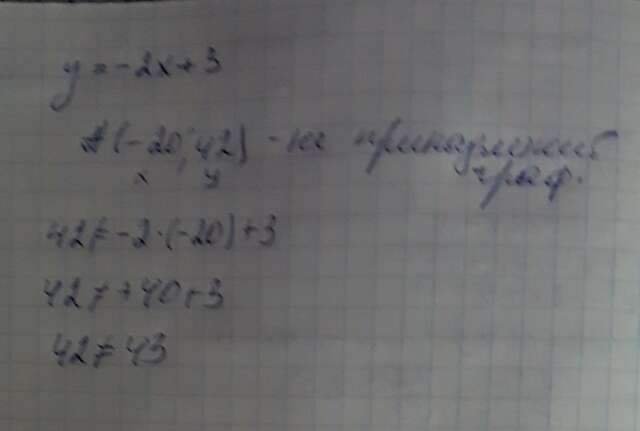 y = -2x + 3
A(-20; 42) - не принадлежит
x y граф.
42 ≠ -2·(-20)+3
42 ≠ +40+3
42 ≠ 43